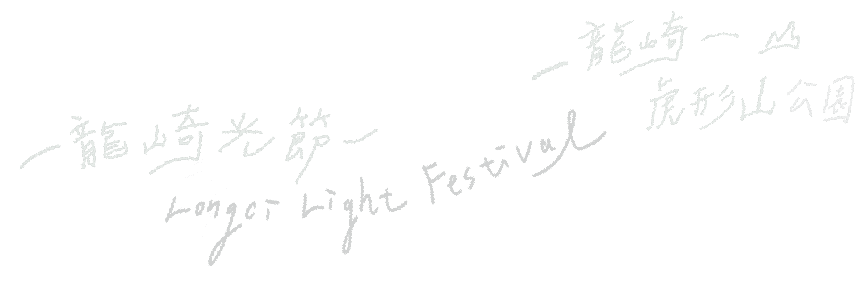 龍崎光節
Longci Light Festival
龍崎
虎形山公園